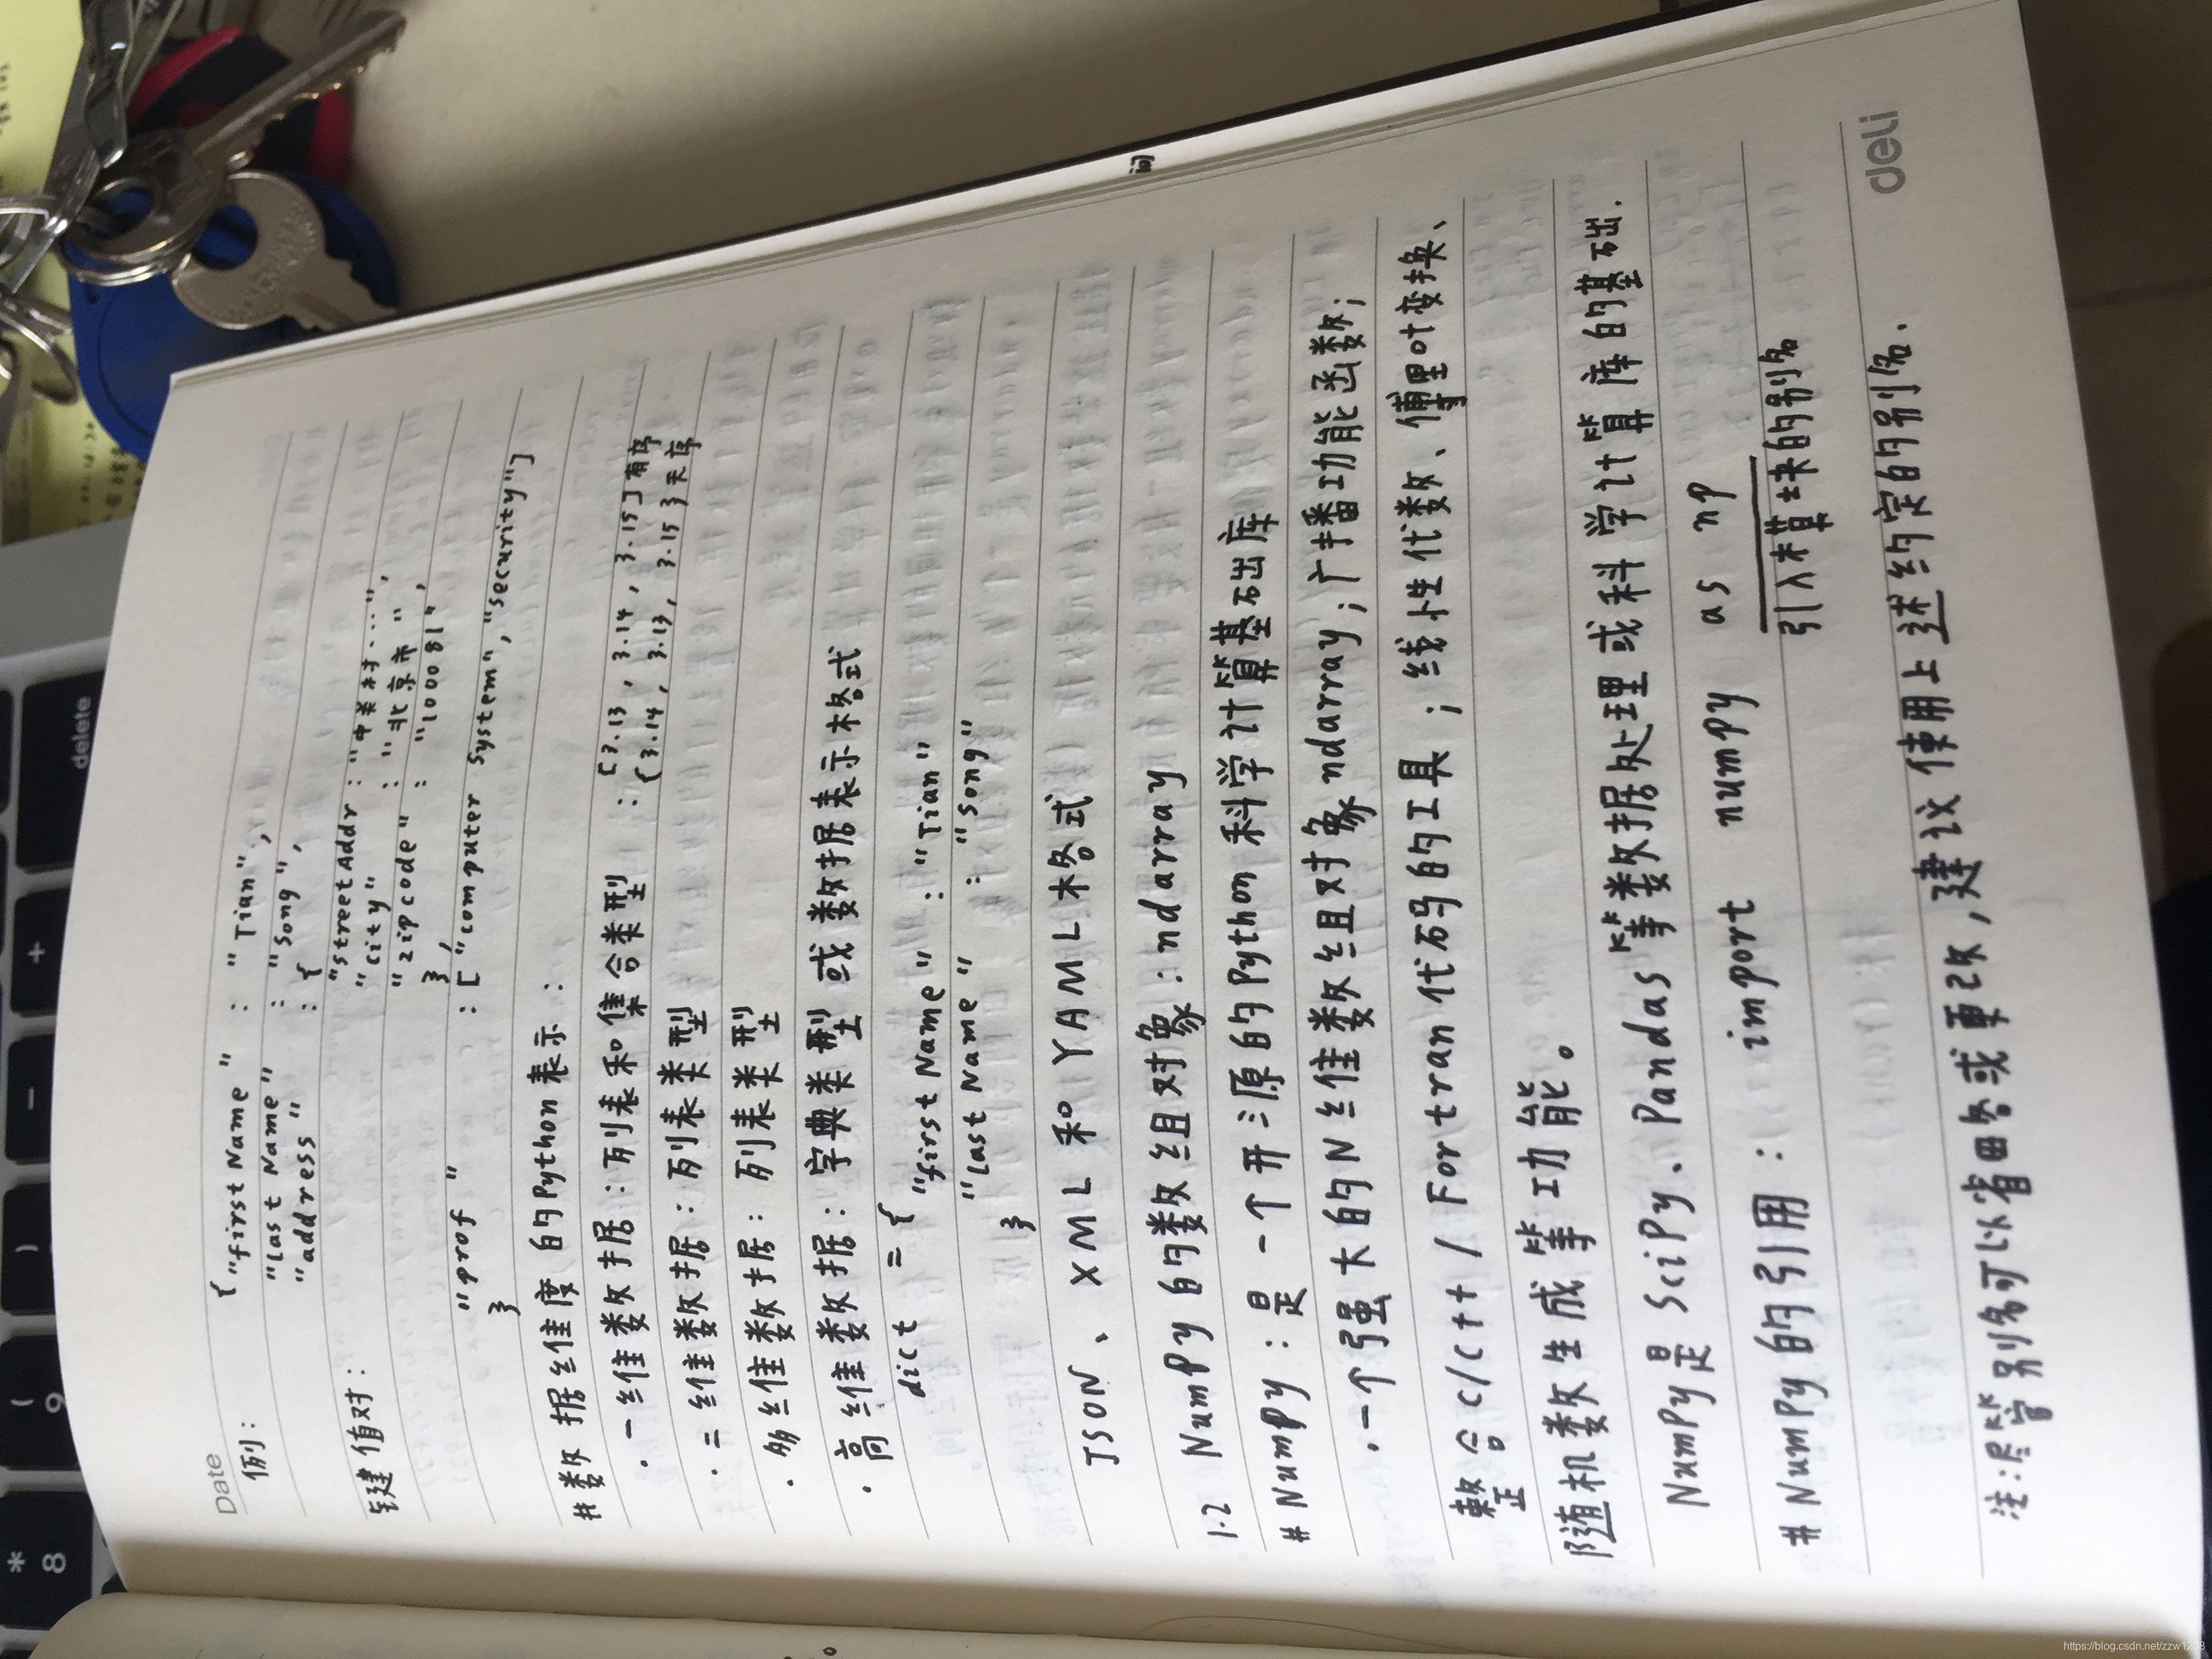 Date
例:
{ "firstName" : "Tian",
"lastName" : "Song",
"address" : {
键值对:
"streetAddr : "中关村…",
"city" : "北京市",
"zipcode" : "100081",
},
"prof" : ["Computer System", "security"]
}
# 数据维度的Python表示:
· 一维数据:列表和集合类型 : [3.13, 3.14, 3.15]有序
{3.14, 3.13, 3.15}无序
· 二维数据:列表类型
· 多维数据:列表类型
· 高维数据:字典类型或数据表示格式
dict = {
"firstName" : "Tian"
"lastName" : "Song"
}
JSON、XML和YAML格式
1.2 NumPy的数组对象:ndarray
# NumPy:是一个开源的Python科学计算基础库
· 一个强大的N维数组对象ndarray;广播功能函数;
整合C/C++/Fortran代码的工具;线性代数、傅里叶变换、
随机数生成等功能。
NumPy是SciPy、Pandas等数据处理或科学计算库的基础.
# NumPy的引用: import numpy as np
引入模块的别名
注:尽管别名可以省略或更改,建议使用上述约定的别名.
deli
delete
+
-
)
(
9
*
8
https://blog.csdn.net/zzw1208